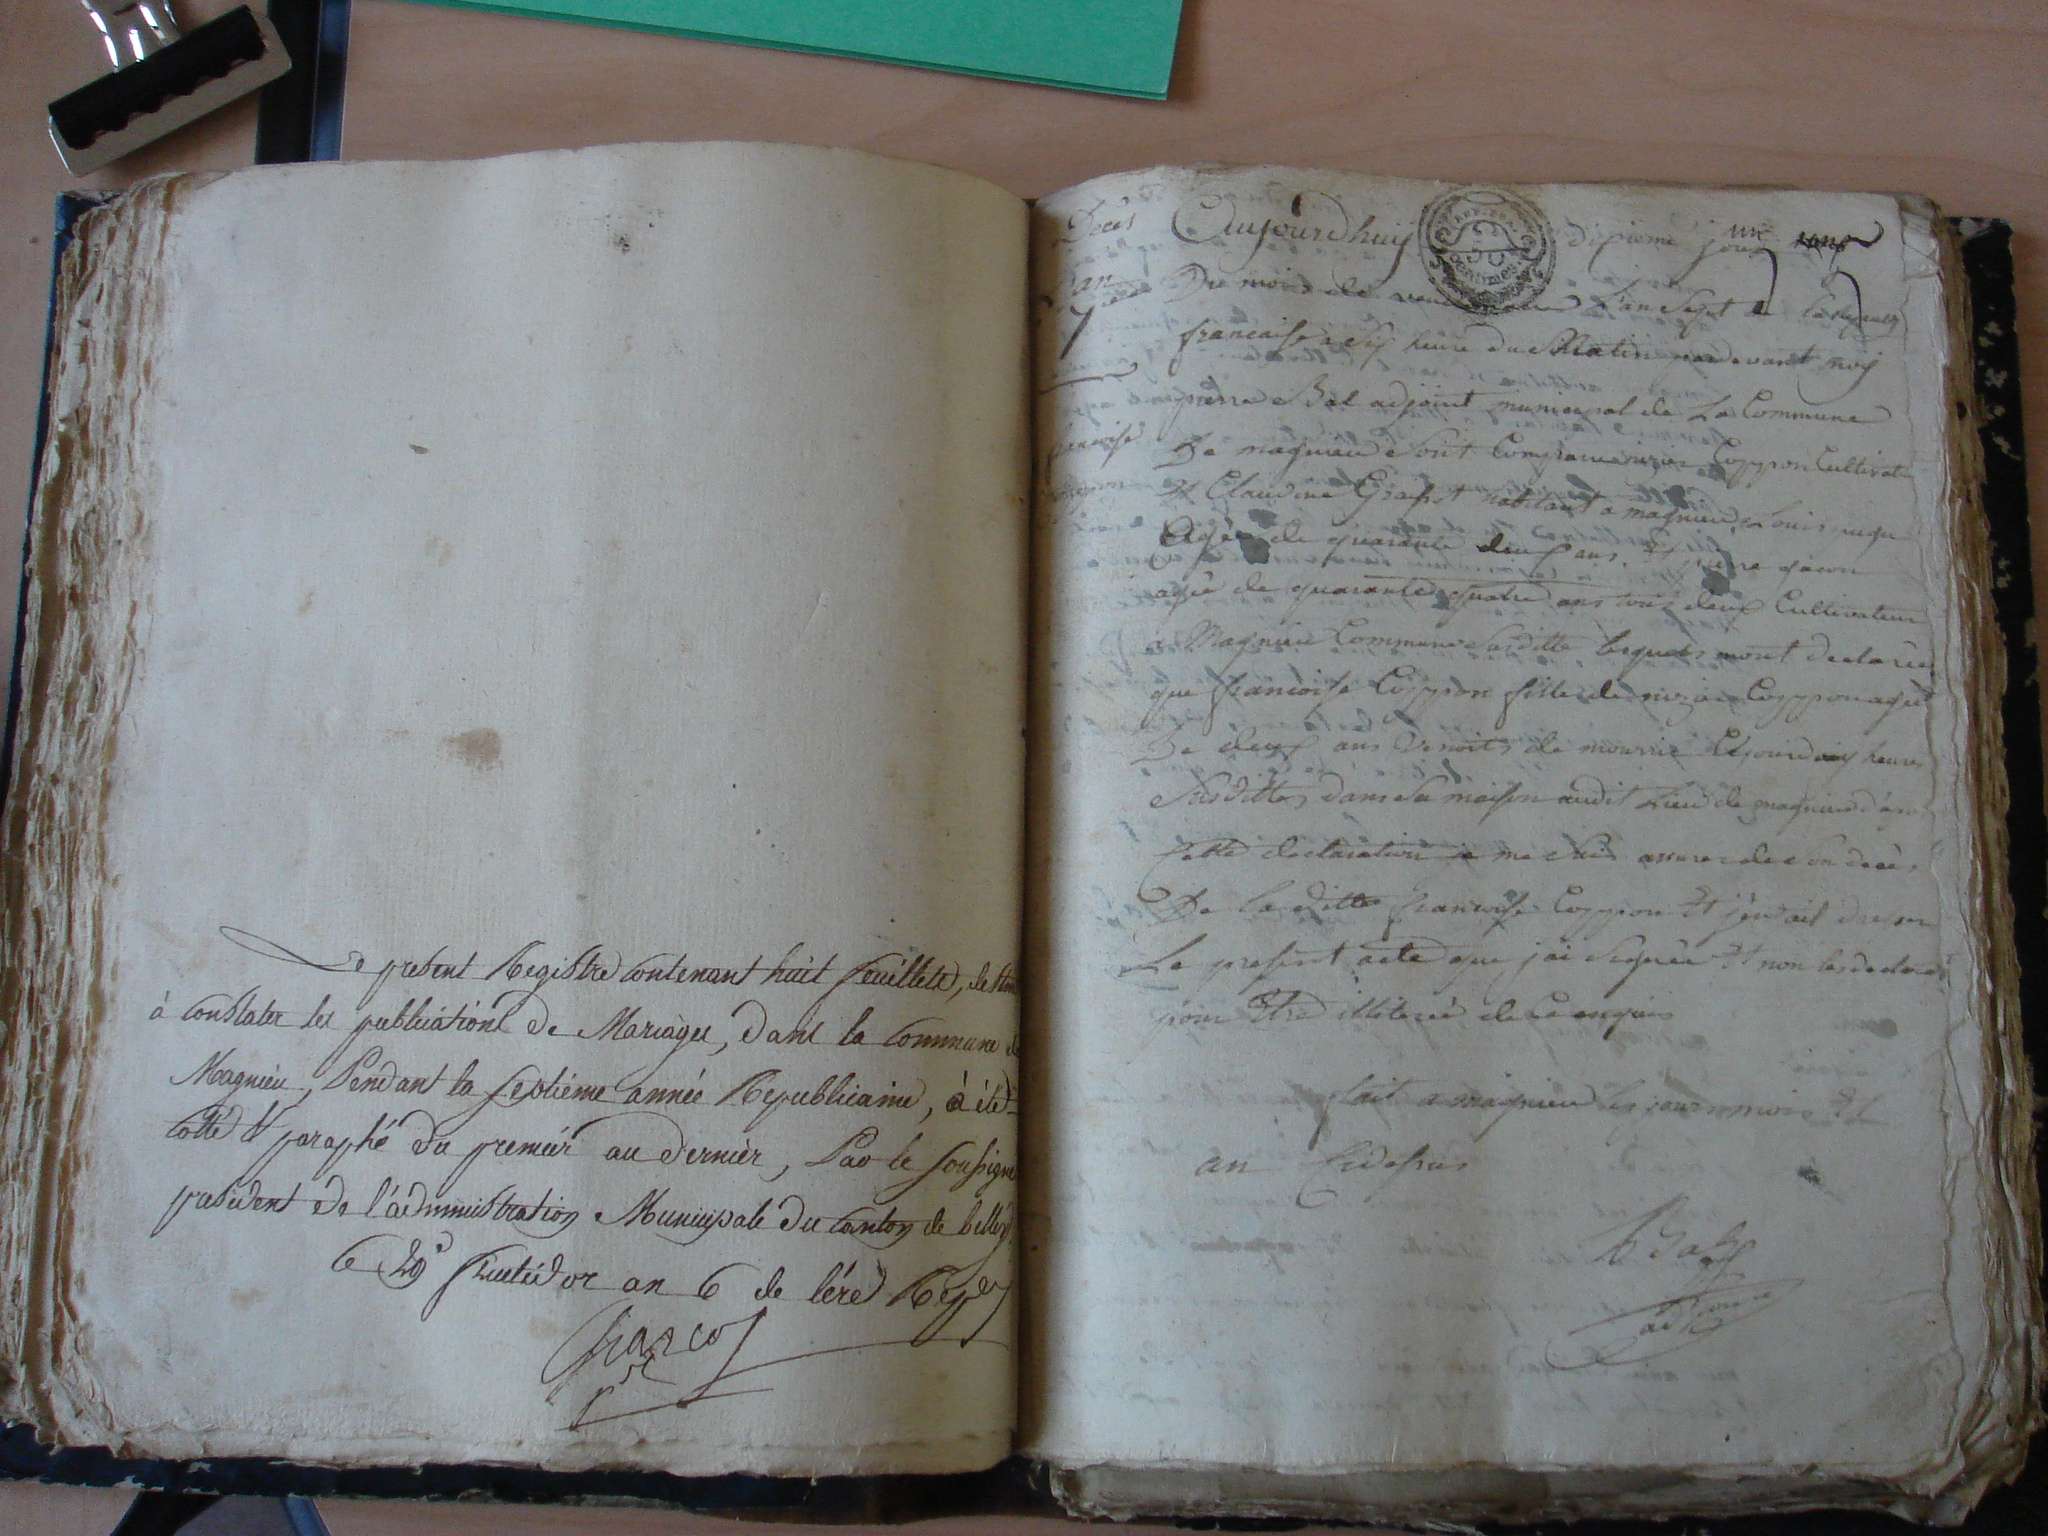 Le present Registre contenant huit feuillets, destiné
à constater les publications de Mariages, dans la commune de
Magnieu, Pendant la septième année Republicaine, à été
cotté & paraphé du premier au dernier, Par le soussigné
president de l'administration Municipale du canton de belley
le 29e fructidor an 6 de l'ère Rep
Décès
l'an
7
francoise
Aujourdhuy dixieme jour
Du mois de l'an Sept de la
francaise a six heure du Matin pardevant moy
pierre Bal adjoint municipal de La Commune
De magnieu Sont Comparu Coppon Cultivat
et Claudine habitant a magnieu, Louis
Agée de quarante deux ans, et pierre
agée de quarante quatre ans tous deux Cultivateur
a Magnieu Commune Susditte lesquels mont declarée
que francoise Coppon fille de Coppon agée
De deux ans Venoits de mourrir heures
Susdittes dans Sa maison audit Lieu de magnieu d'apres
Cette declaration je me Suis assurer de Son decès
De la ditte francoise Coppon et j'en ait dresser
Le present acte que j'ai Signée et non les declarant
pour Etre illiterée de Ce enquis
fait a magnieu les jours mois et
an Cidessus
Bal